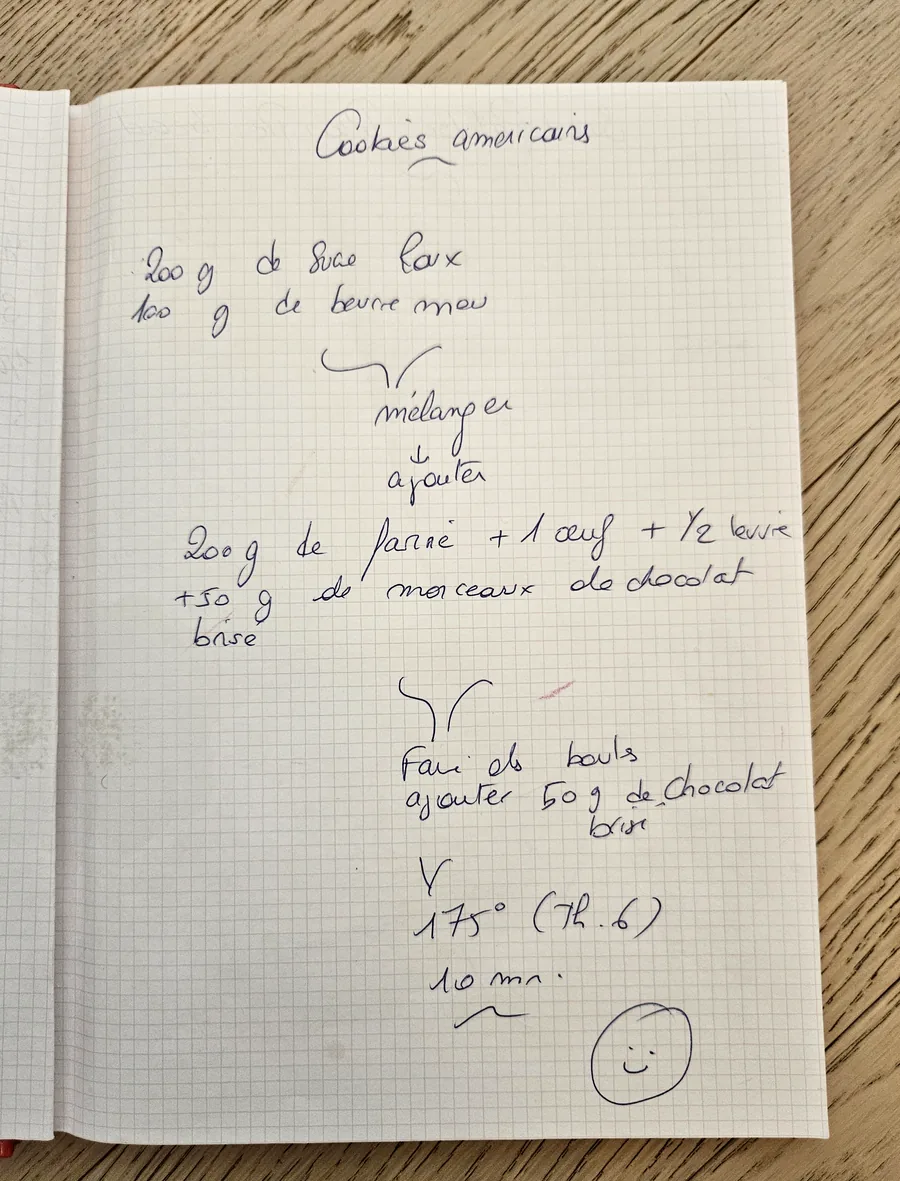 Cookies americains
200 g de sucre Roux
100 g de beurre mou
mélanger
↓
ajouter
200 g de farine + 1 œuf + 1/2 levure
+50 g de morceaux de chocolat
brisé
Faire des boules
ajouter 50 g de chocolat
brisé
175° (Th. 6)
10 mn.